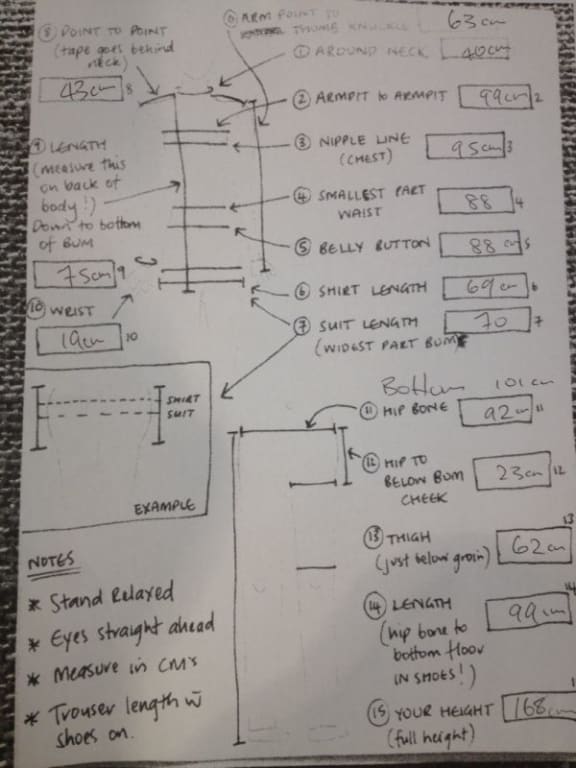 ⓪ ARM POINT TO
THUMB KNUCKLE
63 cm
⑧ POINT TO POINT
(tape goes behind
neck)
43cm 8
① AROUND NECK
40cm
② ARMPIT to ARMPIT
99cm 2
③ NIPPLE LINE
(CHEST)
95cm 3
⑨ LENGTH
(measure this
on back of
body!)
Down to bottom
of BUM
75cm 9
④ SMALLEST PART
WAIST
88 4
⑤ BELLY BUTTON
88 cm 5
⑥ SHIRT LENGTH
69cm 6
⑦ SUIT LENGTH
(WIDEST PART BUM)
70 7
⑩ WRIST
19cm 10
SHIRT
SUIT
EXAMPLE
Bottom 101cm
⑪ HIP BONE
92cm 11
⑫ HIP TO
BELOW BUM
CHEEK
23cm 12
⑬ THIGH
(just below groin)
13
62cm
⑭ LENGTH
(hip bone to
bottom floor
IN SHOES!)
14
99cm
⑮ YOUR HEIGHT
(full height)
168cm
NOTES
* Stand Relaxed
* Eyes straight ahead
* Measure in CM's
* Trouser length w̄
shoes on.